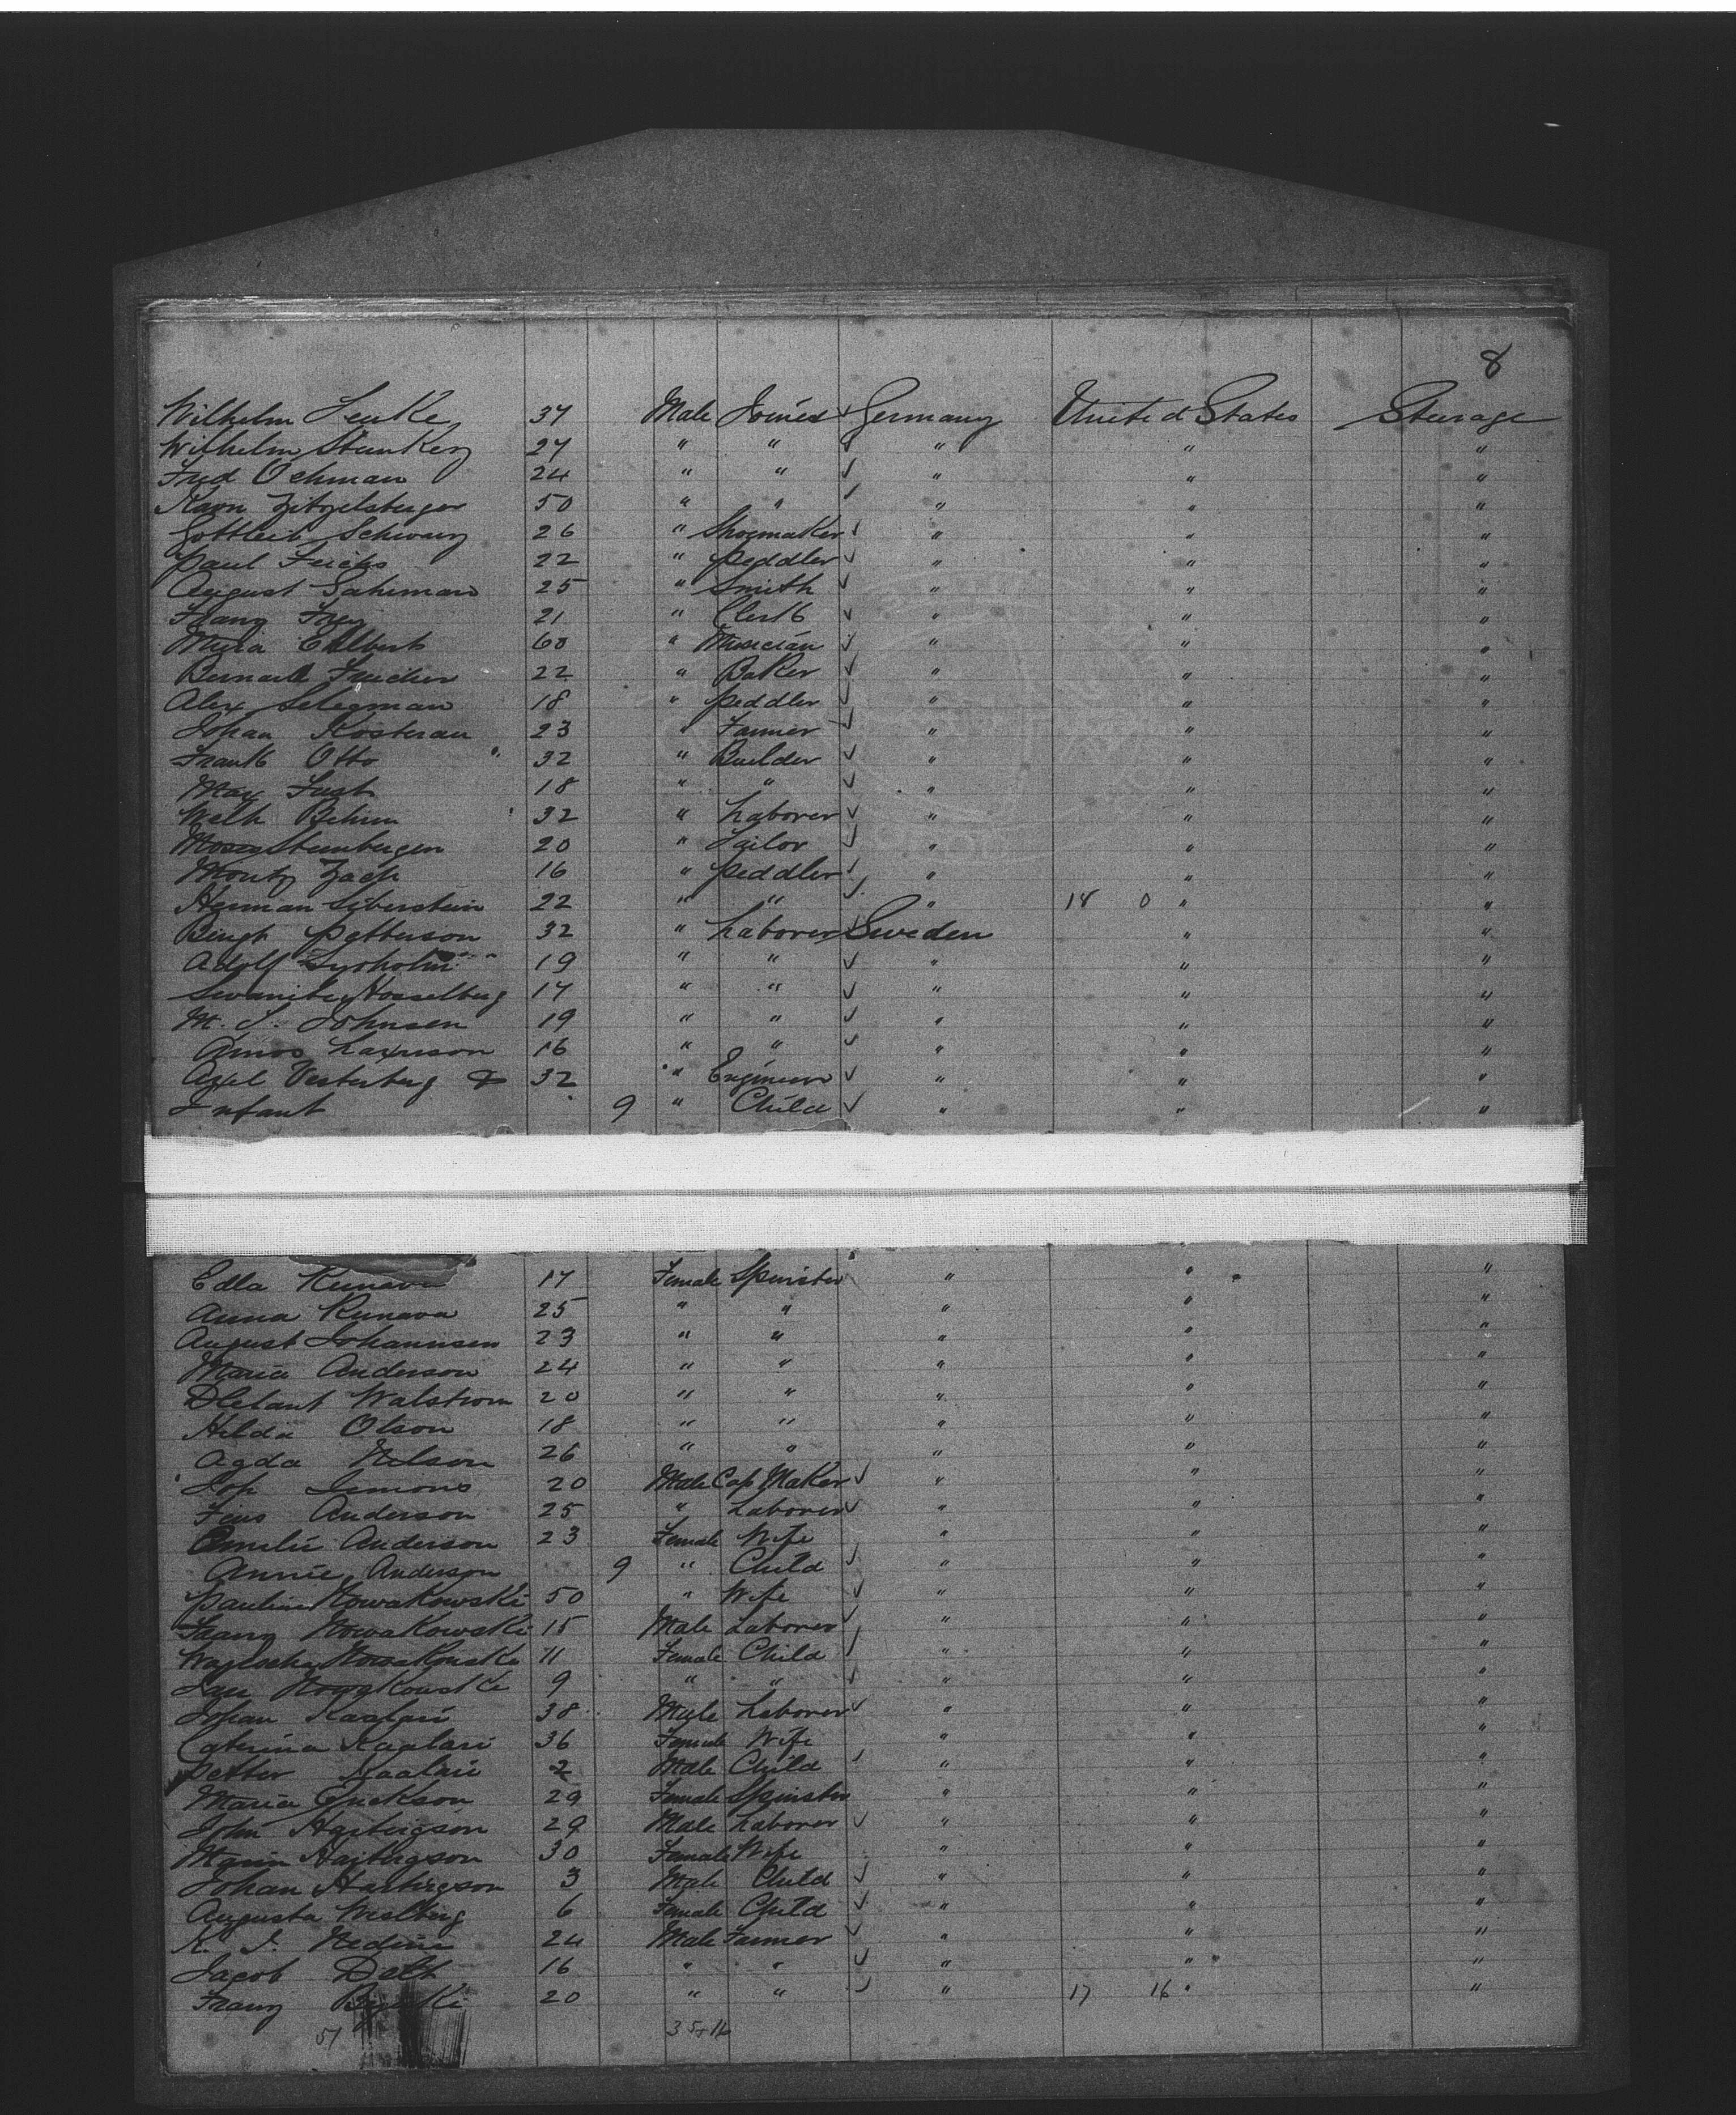 8
Wilhelm Leuke 37 Male Joiner ✓ Germany United States Steerage
Wilhelm Stunkey 27 " " ✓ " " "
Fred Ochman 24 " " ✓ " " "
50 " " ✓ " " "
Gottleib Schwarz 26 " Shoemaker ✓ " " "
Paul 22 " peddler ✓ " " "
August 25 " Smith ✓ " " "
Franz Frey 21 " Clerk ✓ " " "
60 " Musician ✓ " " "
22 " Baker ✓ " " "
Alex Selegman 18 " peddler ✓ " " "
Johan Kosterau 23 " Farmer ✓ " " "
Frank Otto 32 " Builder ✓ " " "
Max Fust 18 " " ✓ " " "
Welh Behm 32 " Laborer ✓ " " "
Moses Sternbergen 20 " Tailor ✓ " " "
Moritz Zack 16 " peddler ✓ " " "
Herman Siberstein 22 " " ✓ " 18 0 " "
Bengt Petterson 32 " Laborer ✓ Sweden " "
Adolf Lyrholm 19 " " ✓ " " "
Hosselberg 17 " " ✓ " " "
M. S. Johnsen 19 " " ✓ " " "
Amos Laxnson 16 " " ✓ " " "
Axel Vesterberg & 32 " Engineer ✓ " " "
Infant 9 " Child ✓ " " "
Edla Kunava 17 Female Spinster " " "
Anna Kunava 25 " " " " "
August Johannsen 23 " " " " "
Maria Anderson 24 " " " " "
Walstrom 20 " " " " "
Hilda Olson 18 " " " " "
Agda Nelson 26 " " " " "
Jop Simons 20 Male Cap Maker ✓ " " "
Jens Anderson 25 " Laborer ✓ " " "
Emelie Anderson 23 Female Wife " " "
Annie Anderson 9 " Child ✓ " " "
Pauline Nowakowski 50 " Wife ✓ " " "
Franz Nowakowski 15 Male Laborer ✓ " " "
Nowakowski 11 Female Child ✓ " " "
Jan Nowakowski 9 " " ✓ " " "
Johan Kaalari 38 Male Laborer ✓ " " "
Caterina Kaalari 36 Female Wife " " "
Petter Kaalari 2 Male Child ✓ " " "
Maria Erickson 29 Female Spinster " " "
John Hasbergson 29 Male Laborer ✓ " " "
Maria Hasbergson 30 Female Wife " " "
Johan Hasbergson 3 Male Child ✓ " " "
Augusta Weslberg 6 Female Child ✓ " " "
K. J. Nedine 24 Male Farmer ✓ " " "
Jacob Delt 16 " " ✓ " " "
Franz 20 " " ✓ " 17 16 " "
51 35+16